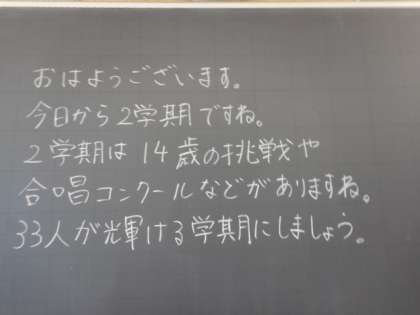 おはようございます。
今日から2学期ですね。
2学期は14歳の挑戦や
合唱コンクールなどがありますね。
33人が光輝ける学期にしましょう。